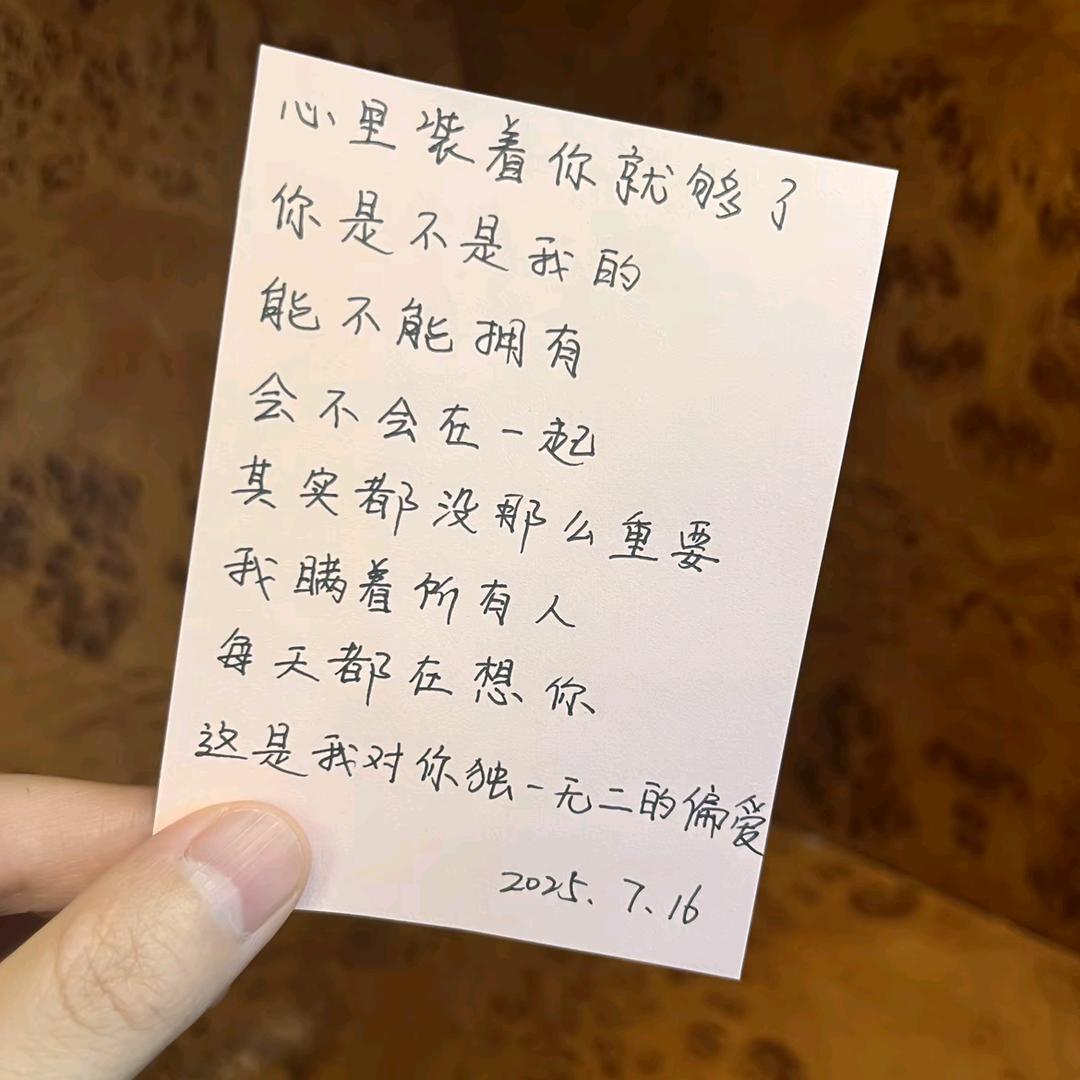 心里装着你就够了
你是不是我的
能不能拥有
会不会在一起
其实都没那么重要
我瞒着所有人
每天都在想你
这是我对你独一无二的偏爱
2025.7.16